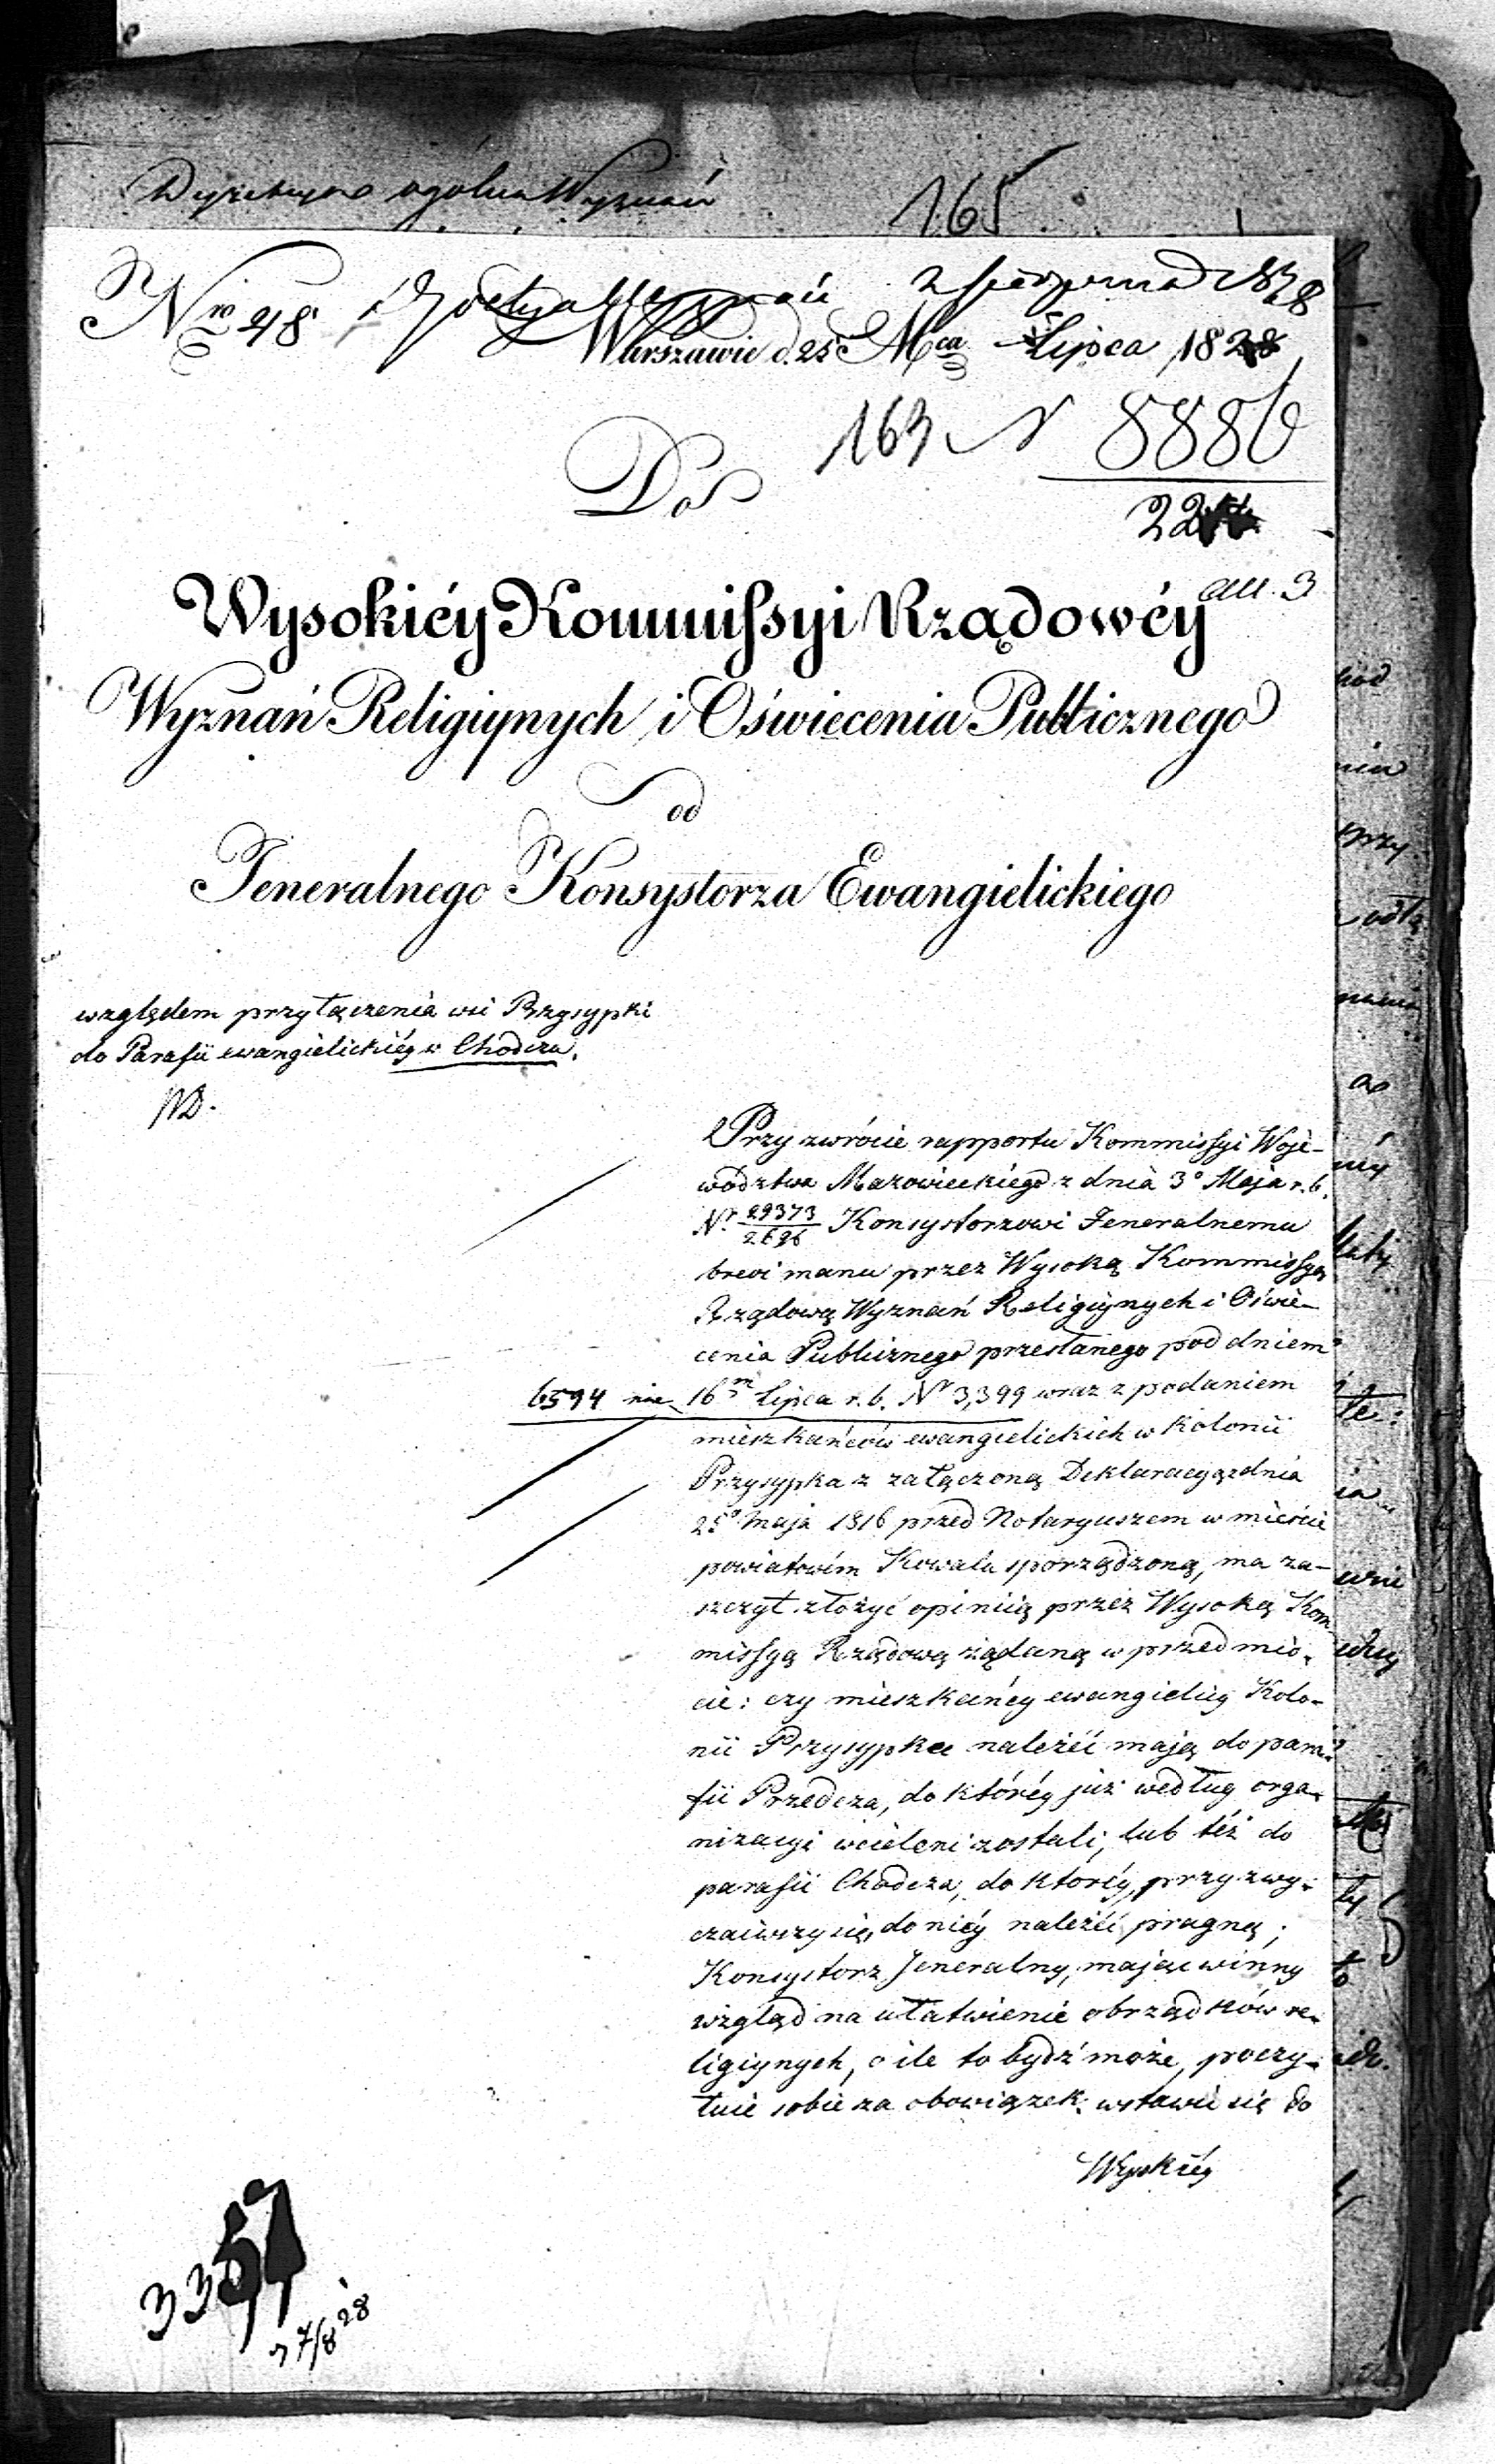 Dyrekcya ogólna Wyznań
165
Nro 48
2 Sierpnia 1828
Warszawie d. 25 Mca Lipca 1828
163 N 8886
22
Do
all. 3
Wysokiéy Kommissyi Rządowéy
Wyznań Religiynych i Oświecenia Publicznego
od
Jeneralnego Konsystorza Ewangielickiego
względem przyłączenia wsi Przysypki
do Parafii ewangielickiéy w Chodczu.
Przy zwrócie rapportu Kommissyi Woje-
wództwa Mazowieckiego z dnia 3o Maja r. b.
Nr 29373/2626 Konsystorzowi Jeneralnemu
brevi manu przez Wysoką Kommissyą
Rządową Wyznań Religiynych i Oświe-
cenia Publicznego przesłanego pod dniem
6594 16m Lipca r. b. Nr 3,399 wraz z podaniem
mieszkańców ewangielickich w Kolonii
Przysypka z załączoną Deklaracyą z dnia
25o Maja 1816 przed Notaryuszem w mieście
powiatowém Kowalu sporządzoną, ma za-
szczyt złożyć opiniią przez Wysoką Kom-
missyą Rządową żądaną w przedmio-
cie: czy mieszkańcy ewangieliccy Kolo-
nii Przysypka należéć mają do para-
fii Przedcza, do któréy już według orga-
nizacyi wcieleni zostali, lub téż do
parafii Chodcza, do któréy, przyzwy-
czaiwszy się, do niéy należéć pragną;
Konsystorz Jeneralny, mając winny
wzgląd na ułatwienie obrządków re-
ligiynych, o ile to bydź może, poczy-
tuie sobie za obowiązek wstawić się do
Wysokiéy
33
7/8 28